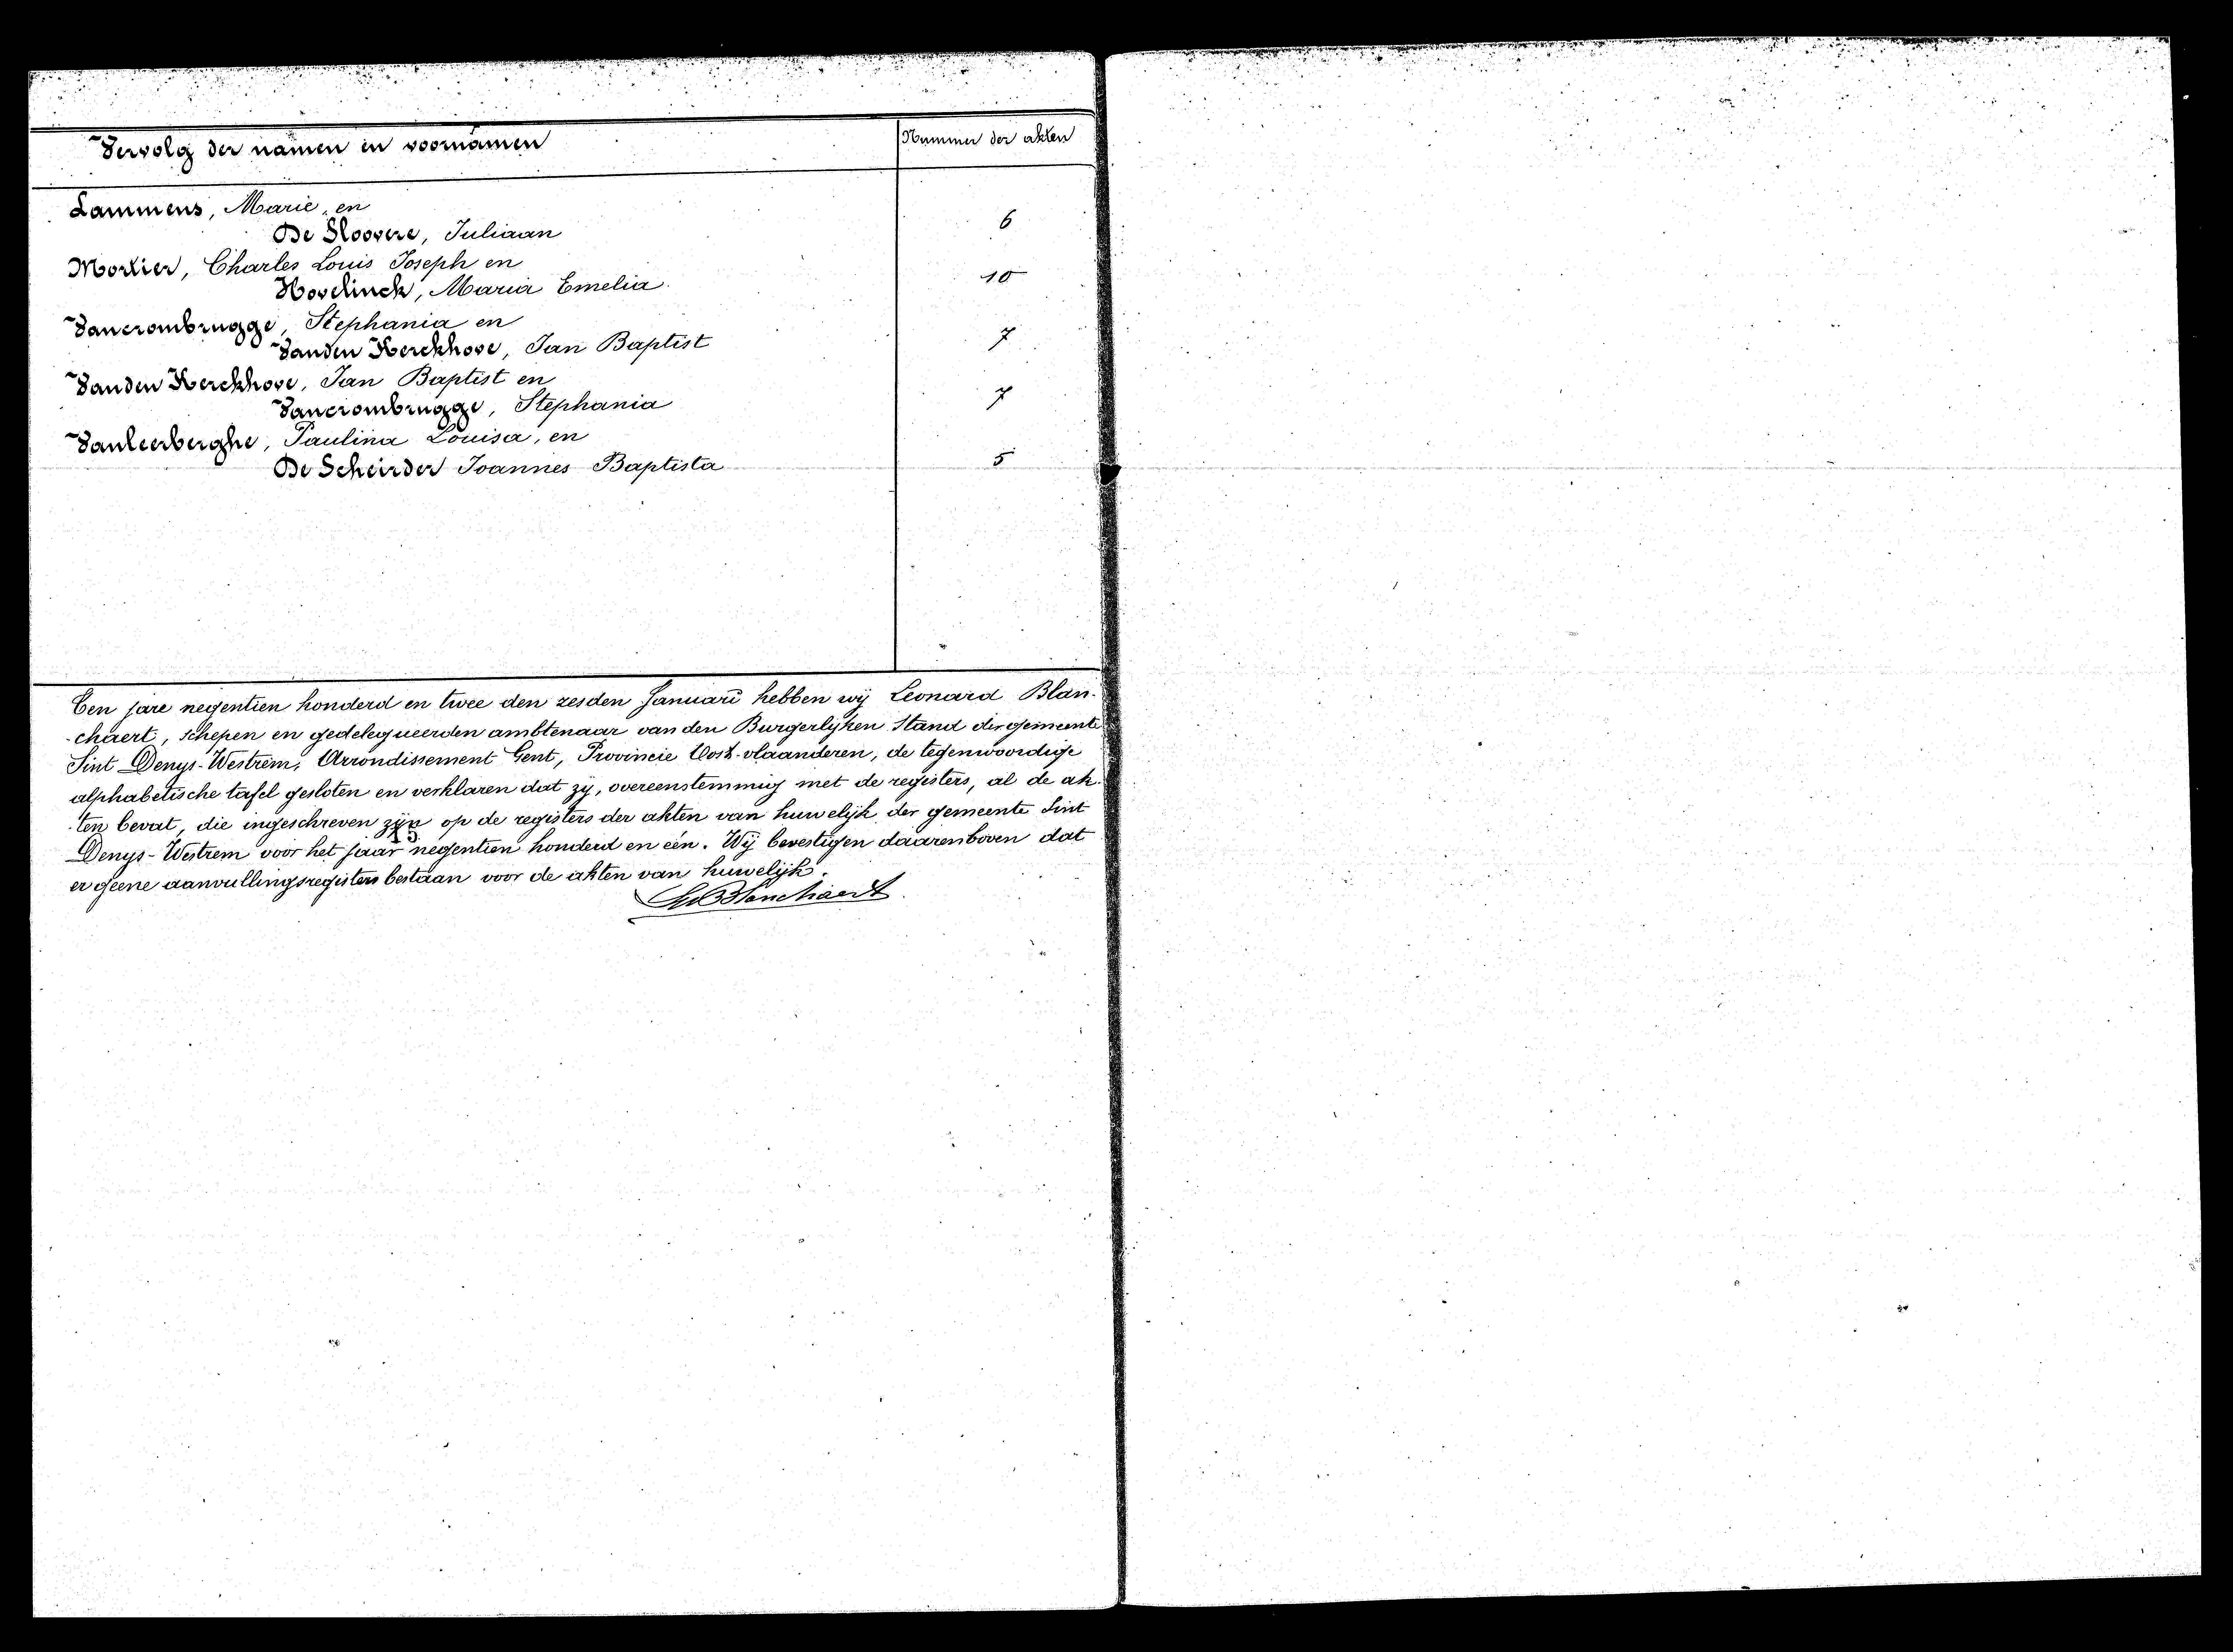 Vervolg der namen en voornamen
Nummer der akten
Lammens, Marie, en
De Sloovere, Juliaan
6
Mortier, Charles Louis Joseph en
Hovelinck, Maria Emelia.
10
Vancrombrugge, Stephania en
Vanden Kerckhove, Jan Baptist
7
Vanden Kerckhove, Jan Baptist en
Vancrombrugge, Stephania
7
Vanleerberghe, Paulina Louisa, en
De Scheirder Joannes Baptista
5
Ten jare negentien honderd en twee den zesden Januari hebben wij Leonard Blan-
-chaert, schepen en gedelegueerden ambtenaar van den Burgerlijken Stand der gemeente
Sint Denys-Westrem, Arrondissement Gent, Provincie Oost-vlaanderen, de tegenwoordige
alphabetische tafel gesloten en verklaren dat zij, overeenstemmig met de registers, al de ak-
-ten bevat, die ingeschreven zijn op de registers der akten van huwelijk der gemeente Sint
Denys-Westrem voor het jaar negentien honderd en één. Wij bevestigen daarenboven dat
er geene aanvullingsregisters bestaan voor de akten van huwelijk.
Blanchaert